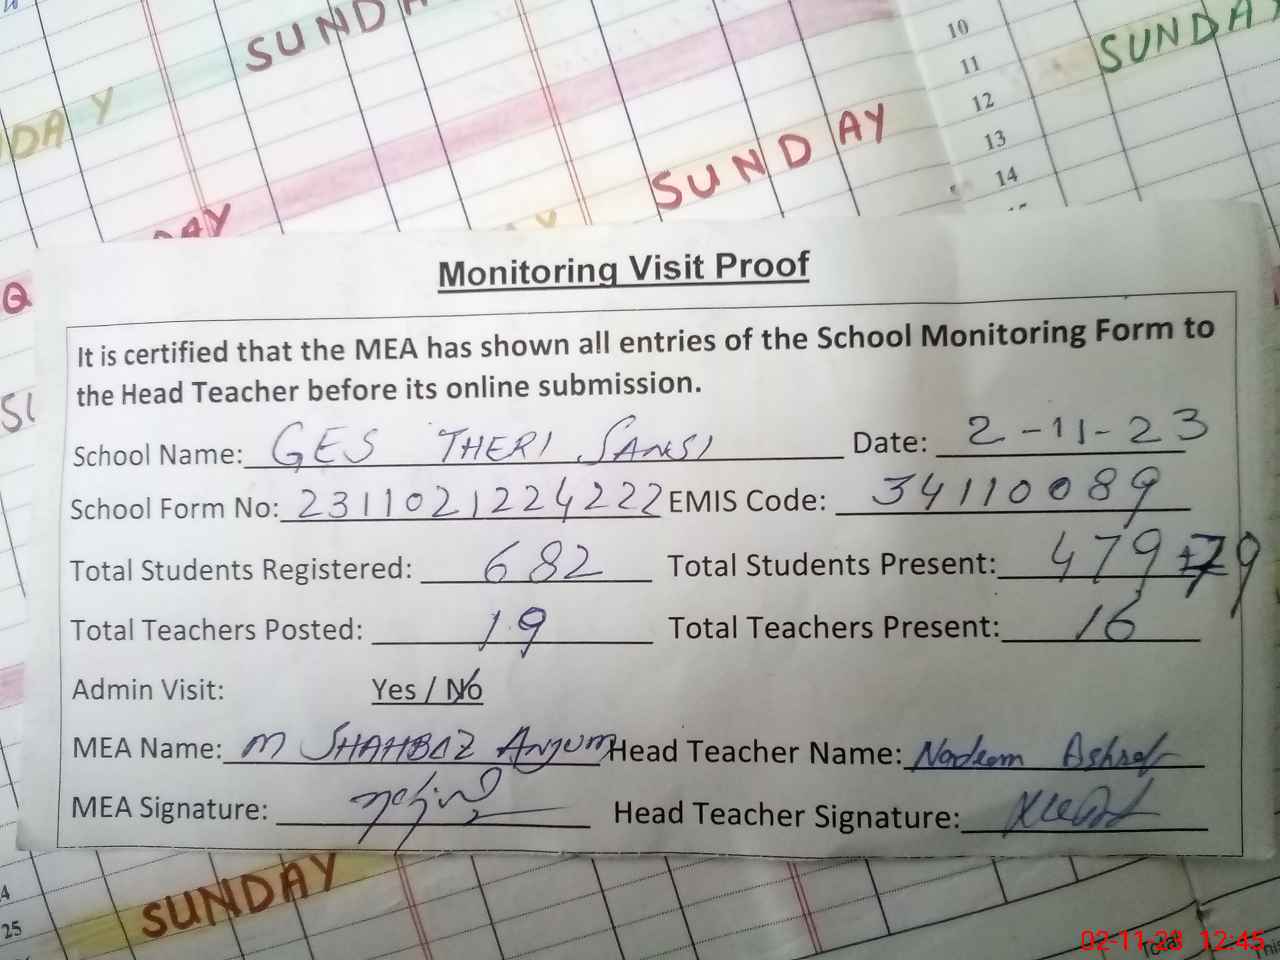 SUNDA
SUNDA
DAY
10
11
12
13
14
SUNDAY
AY
Monitoring Visit Proof
It is certified that the MEA has shown all entries of the School Monitoring Form to
the Head Teacher before its online submission.
School Name: GES THERI SANSI Date: 2-11-23
School Form No: 2311021224222 EMIS Code: 34110089
Total Students Registered: 682 Total Students Present: 479
Total Teachers Posted: 19 Total Teachers Present: 16
Admin Visit: Yes / No
MEA Name: M SHAHBAZ ANJUM Head Teacher Name: Nadeem Ashraf
MEA Signature: Head Teacher Signature:
SUNDAY
25
02-11-23 12:45
Total